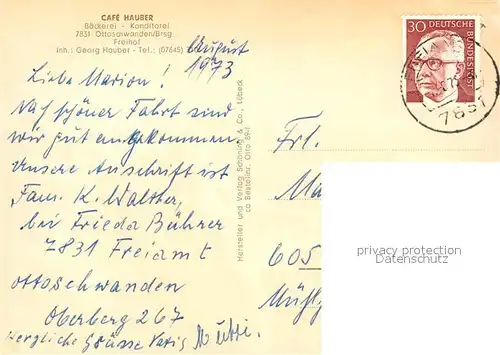 CAFÉ HAUBER
Bäckerei - Konditorei
7831 Ottoschwanden/Brsg.
Freihof
Inh.: Georg Hauber - Tel.: (07645)
August
1973
Liebe Marion!
Nach schöner Fahrt sind
wir gut angekommen.
Unsere Anschrift ist
Fam. K. Walther,
bei Frieda Bührer
7831 Freiamt
Ottoschwanden
Oberberg 267
Herzliche Grüsse Vati, Mutti.
Hersteller und Verlag Schöning & Co., Lübeck
Bestellnr. Otto
30 DEUTSCHE BUNDESPOST
7831
Frl.
Ma
605
Mühl
privacy protection
Datenschutz